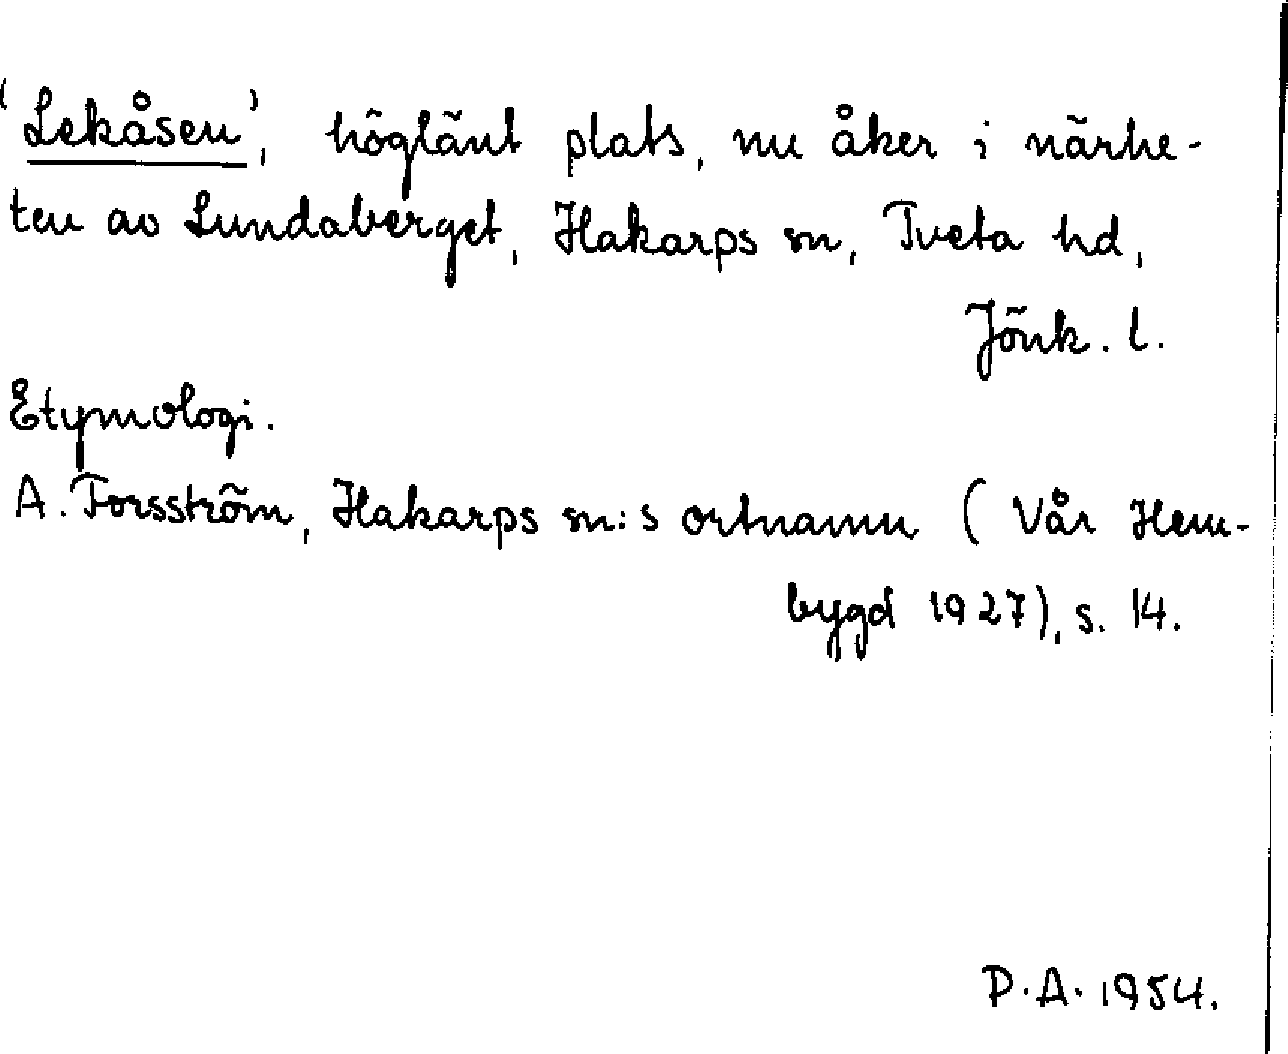 'Lekåsen', höglänt plats, nu åker i närhe-
ten av Lundaberget, Hakarps sn, Tveta hd,
Jönk. l.
Etymologi.
A. Forsström, Hakarps sn:s ortnamn (Vår Hem-
bygd 1927), s. 14.
P.A. 1954.